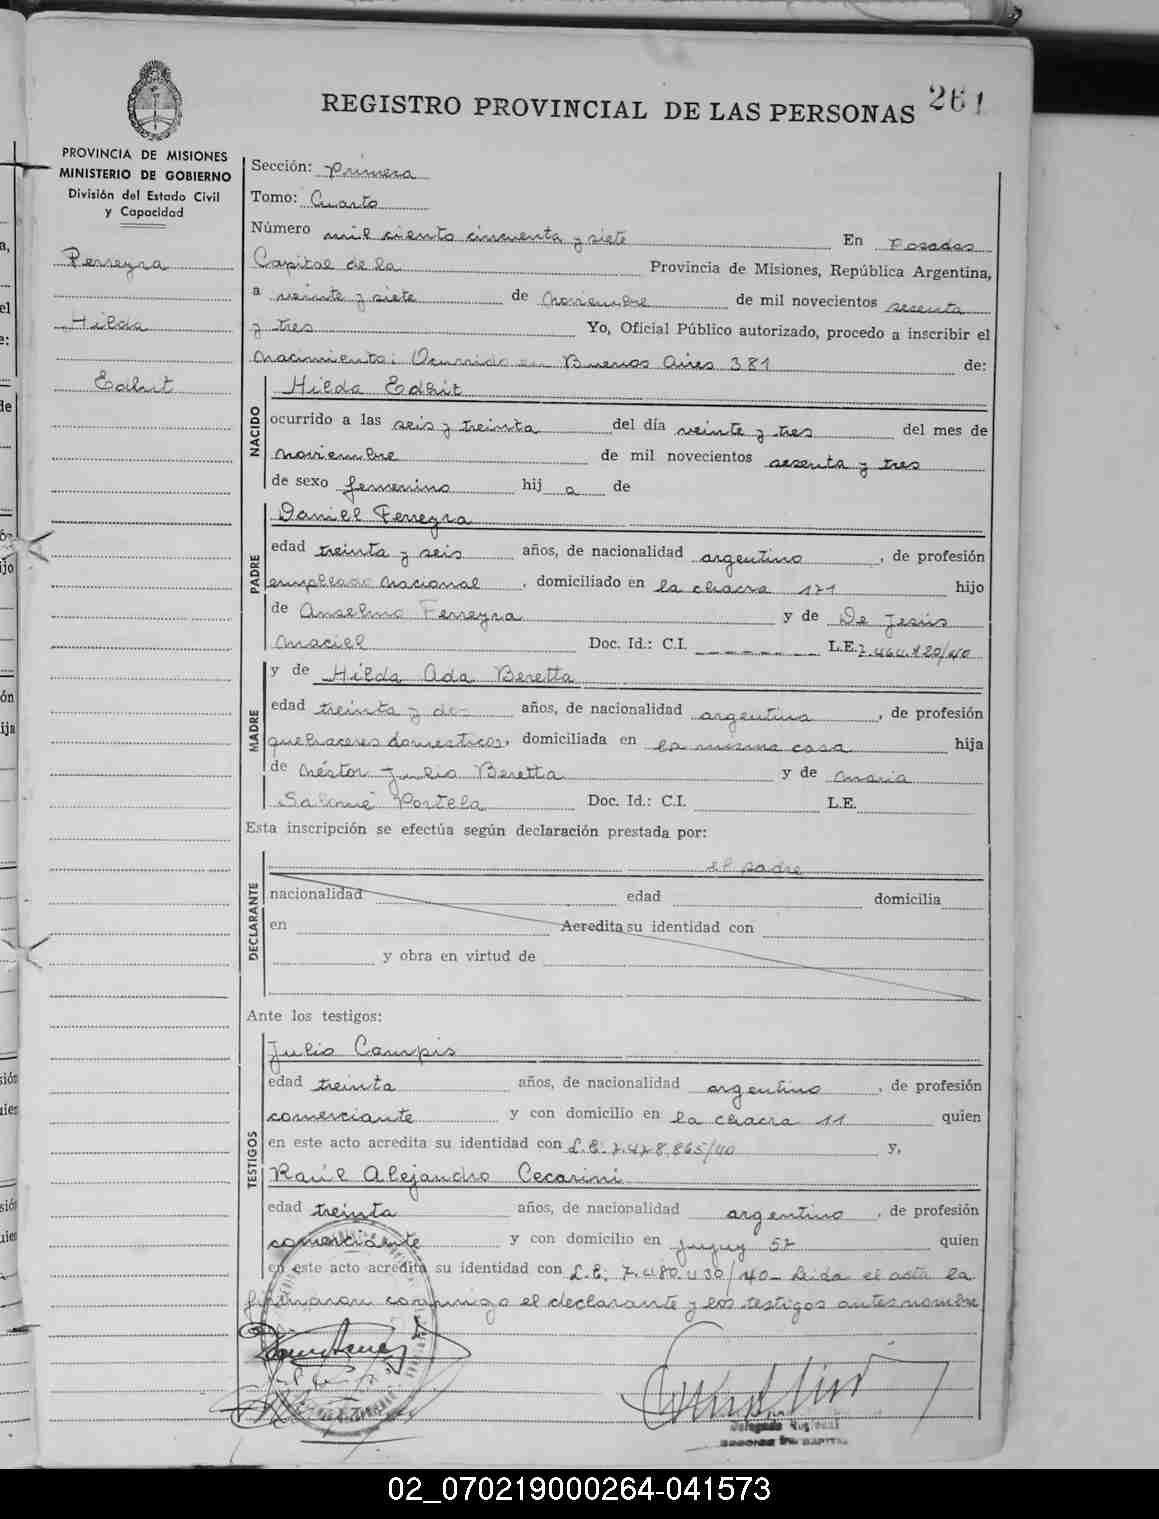 REGISTRO PROVINCIAL DE LAS PERSONAS 261
PROVINCIA DE MISIONES
MINISTERIO DE GOBIERNO
División del Estado Civil
y Capacidad
Ferreyra
Hilda
Edhit
Sección: Primera
Tomo: Cuarto
Número mil ciento cincuenta y siete En Posadas
Capital de la Provincia de Misiones, República Argentina,
a veinte y siete de Noviembre de mil novecientos sesenta
y tres Yo, Oficial Público autorizado, procedo a inscribir el
Nacimiento: Ocurrido en Buenos Aires 381 de:
NACIDO
Hilda Edhit
ocurrido a las seis y treinta del día veinte y tres del mes de
Noviembre de mil novecientos sesenta y tres
de sexo femenino hij a de
PADRE
Daniel Ferreyra
edad treinta y seis años, de nacionalidad argentino, de profesión
empleado Nacional, domiciliado en la chacra 171 hijo
de Anselmo Ferreyra y de De Jesús
Maciel Doc. Id.: C.I. L.E.
MADRE
y de Hilda Ada Beretta
edad treinta y dos años, de nacionalidad argentina, de profesión
quehaceres domesticos, domiciliada en la misma casa hija
de Néstor Julio Beretta y de Maria
Salomé Portela Doc. Id.: C.I. L.E.
Esta inscripción se efectúa según declaración prestada por:
DECLARANTE
el padre
nacionalidad edad domicilia
en Acredita su identidad con
y obra en virtud de
Ante los testigos:
TESTIGOS
Julio Campis
edad treinta años, de nacionalidad argentino, de profesión
comerciante y con domicilio en la chacra 11 quien
en este acto acredita su identidad con L.E: 7.478.865/40 y,
Raúl Alejandro Cecarini
edad treinta años, de nacionalidad argentino, de profesión
comerciante y con domicilio en Jujuy 57 quien
en este acto acredita su identidad con L.E: 7.480.430/40- Leida el acta la
firmaron conmigo el declarante y los testigos antes nombre
02_070219000264-041573